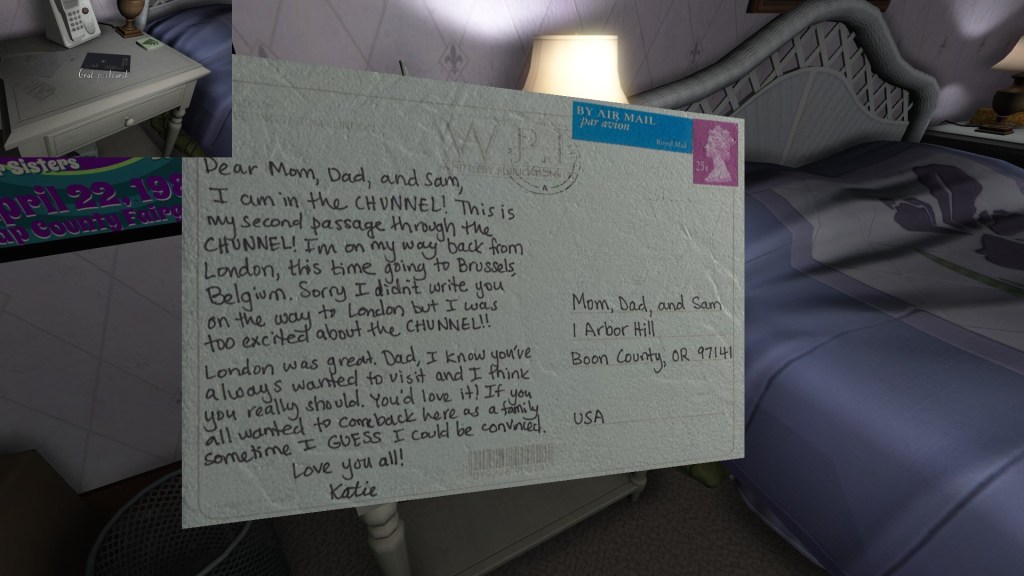 Credit card
rSisters
April 22, 198
County Fair
W.P.I.
BY AIR MAIL
par avion
Royal Mail
Dear Mom, Dad, and Sam,
I am in the CHUNNEL! This is
my second passage through the
CHUNNEL! I'm on my way back from
London, this time going to Brussels,
Belgium. Sorry I didn't write you
on the way to London but I was
too excited about the CHUNNEL!!
London was great. Dad, I know you've
always wanted to visit and I think
you really should. You'd love it! If you
all wanted to come back here as a family
sometime I GUESS I could be convinced.
Love you all!
Katie
Mom, Dad, and Sam
1 Arbor Hill
Boon County, OR 97141
USA